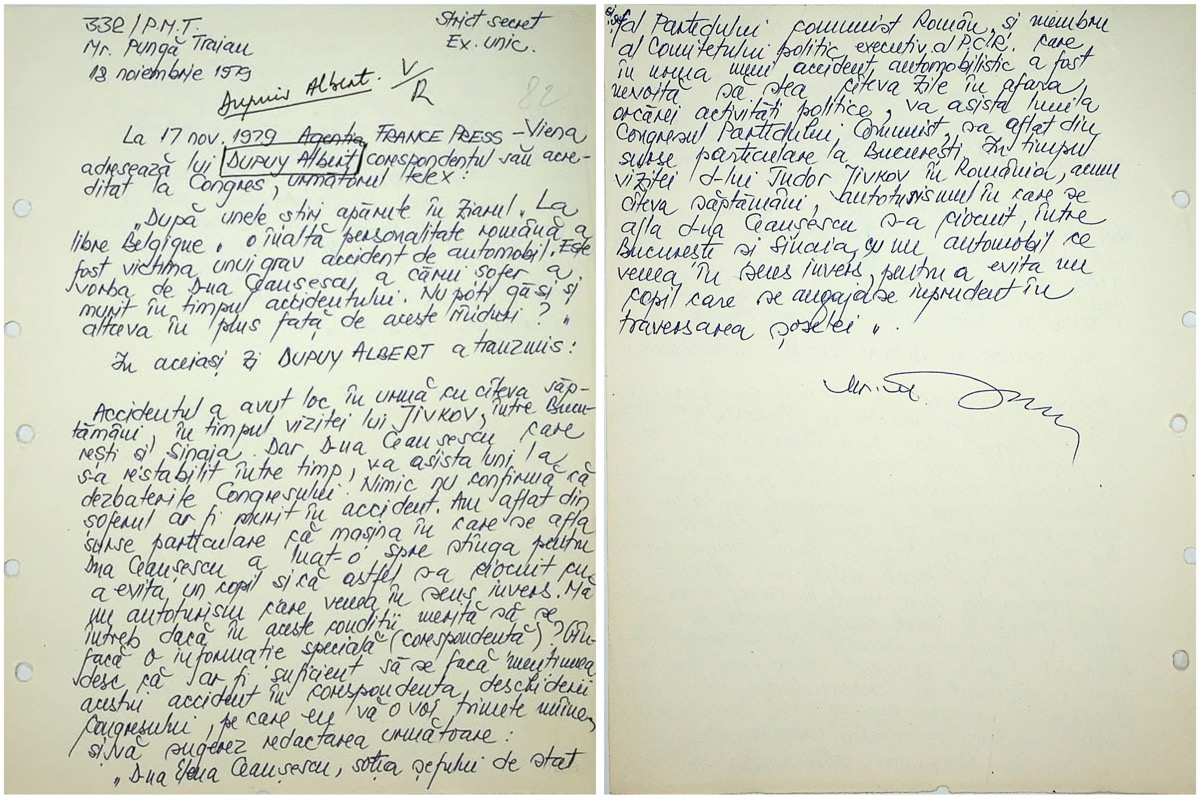 332/P.M.T.
Strict secret
Mr. Pungă Traian
Ex. unic.
18 noiembrie 1979
Dupuis Albert. V/R
82
La 17 nov. 1979 Agenția FRANCE PRESS – Viena
adresează lui DUPUY Albert corespondentul său acre-
ditat la Congres, următorul telex:
„După unele știri apărute în ziarul „La
libre Belgique„ o înaltă personalitate română a
fost victima unui grav accident de automobil. Este
vorba de D-na Ceaușescu, a cărui șofer a
murit în timpul accidentului. Nu poți găsi și
altceva în plus față de aceste rînduri? „
În aceiași zi DUPUY ALBERT a tranzmis:
Accidentul a avut loc în urmă cu cîteva săp-
tămâni, în timpul vizitei lui JIVKOV, între Bucu-
rești și Sinaia. Dar D-na Ceaușescu care
s-a restabilit între timp, va asista luni la
dezbaterile Congresului. Nimic nu confirmă că
șoferul ar fi murit în accident. Am aflat din
surse particulare că mașina în care se afla
D-na Ceaușescu a luat-o spre stînga pentru
a evita un copil și că astfel s-a ciocnit cu
un autoturism care venea în sens invers. Mă
întreb dacă în aceste condiții merită să se
facă o informație specială (corespondență)? Gîn-
desc că ar fi suficient să se facă mențiunea
acestui accident în corespondența deschiderii
Congresului, pe care eu vă o voi trimete mîine,
și vă sugerez redactarea următoare:
„D-na Elena Ceaușescu, soția șefului de stat
și șef al Partidului comunist Român, și membru
al Comitetului politic executiv al P.C.R. care
în urma unui accident automobilistic a fost
nevoită să stea cîteva zile în afara
orcărei activități politice, va asista luni la
Congresul Partidului Comunist, s-a aflat din
surse particulare la București. În timpul
vizitei d-lui Tudor JIVKOV în România, acum
cîteva săptămâni, autoturismul în care se
afla d-na Ceaușescu s-a ciocnit între
București și Sinaia, cu un automobil ce
venea în sens invers, pentru a evita un
copil care se angajase inprudent în
traversarea șoselei „.